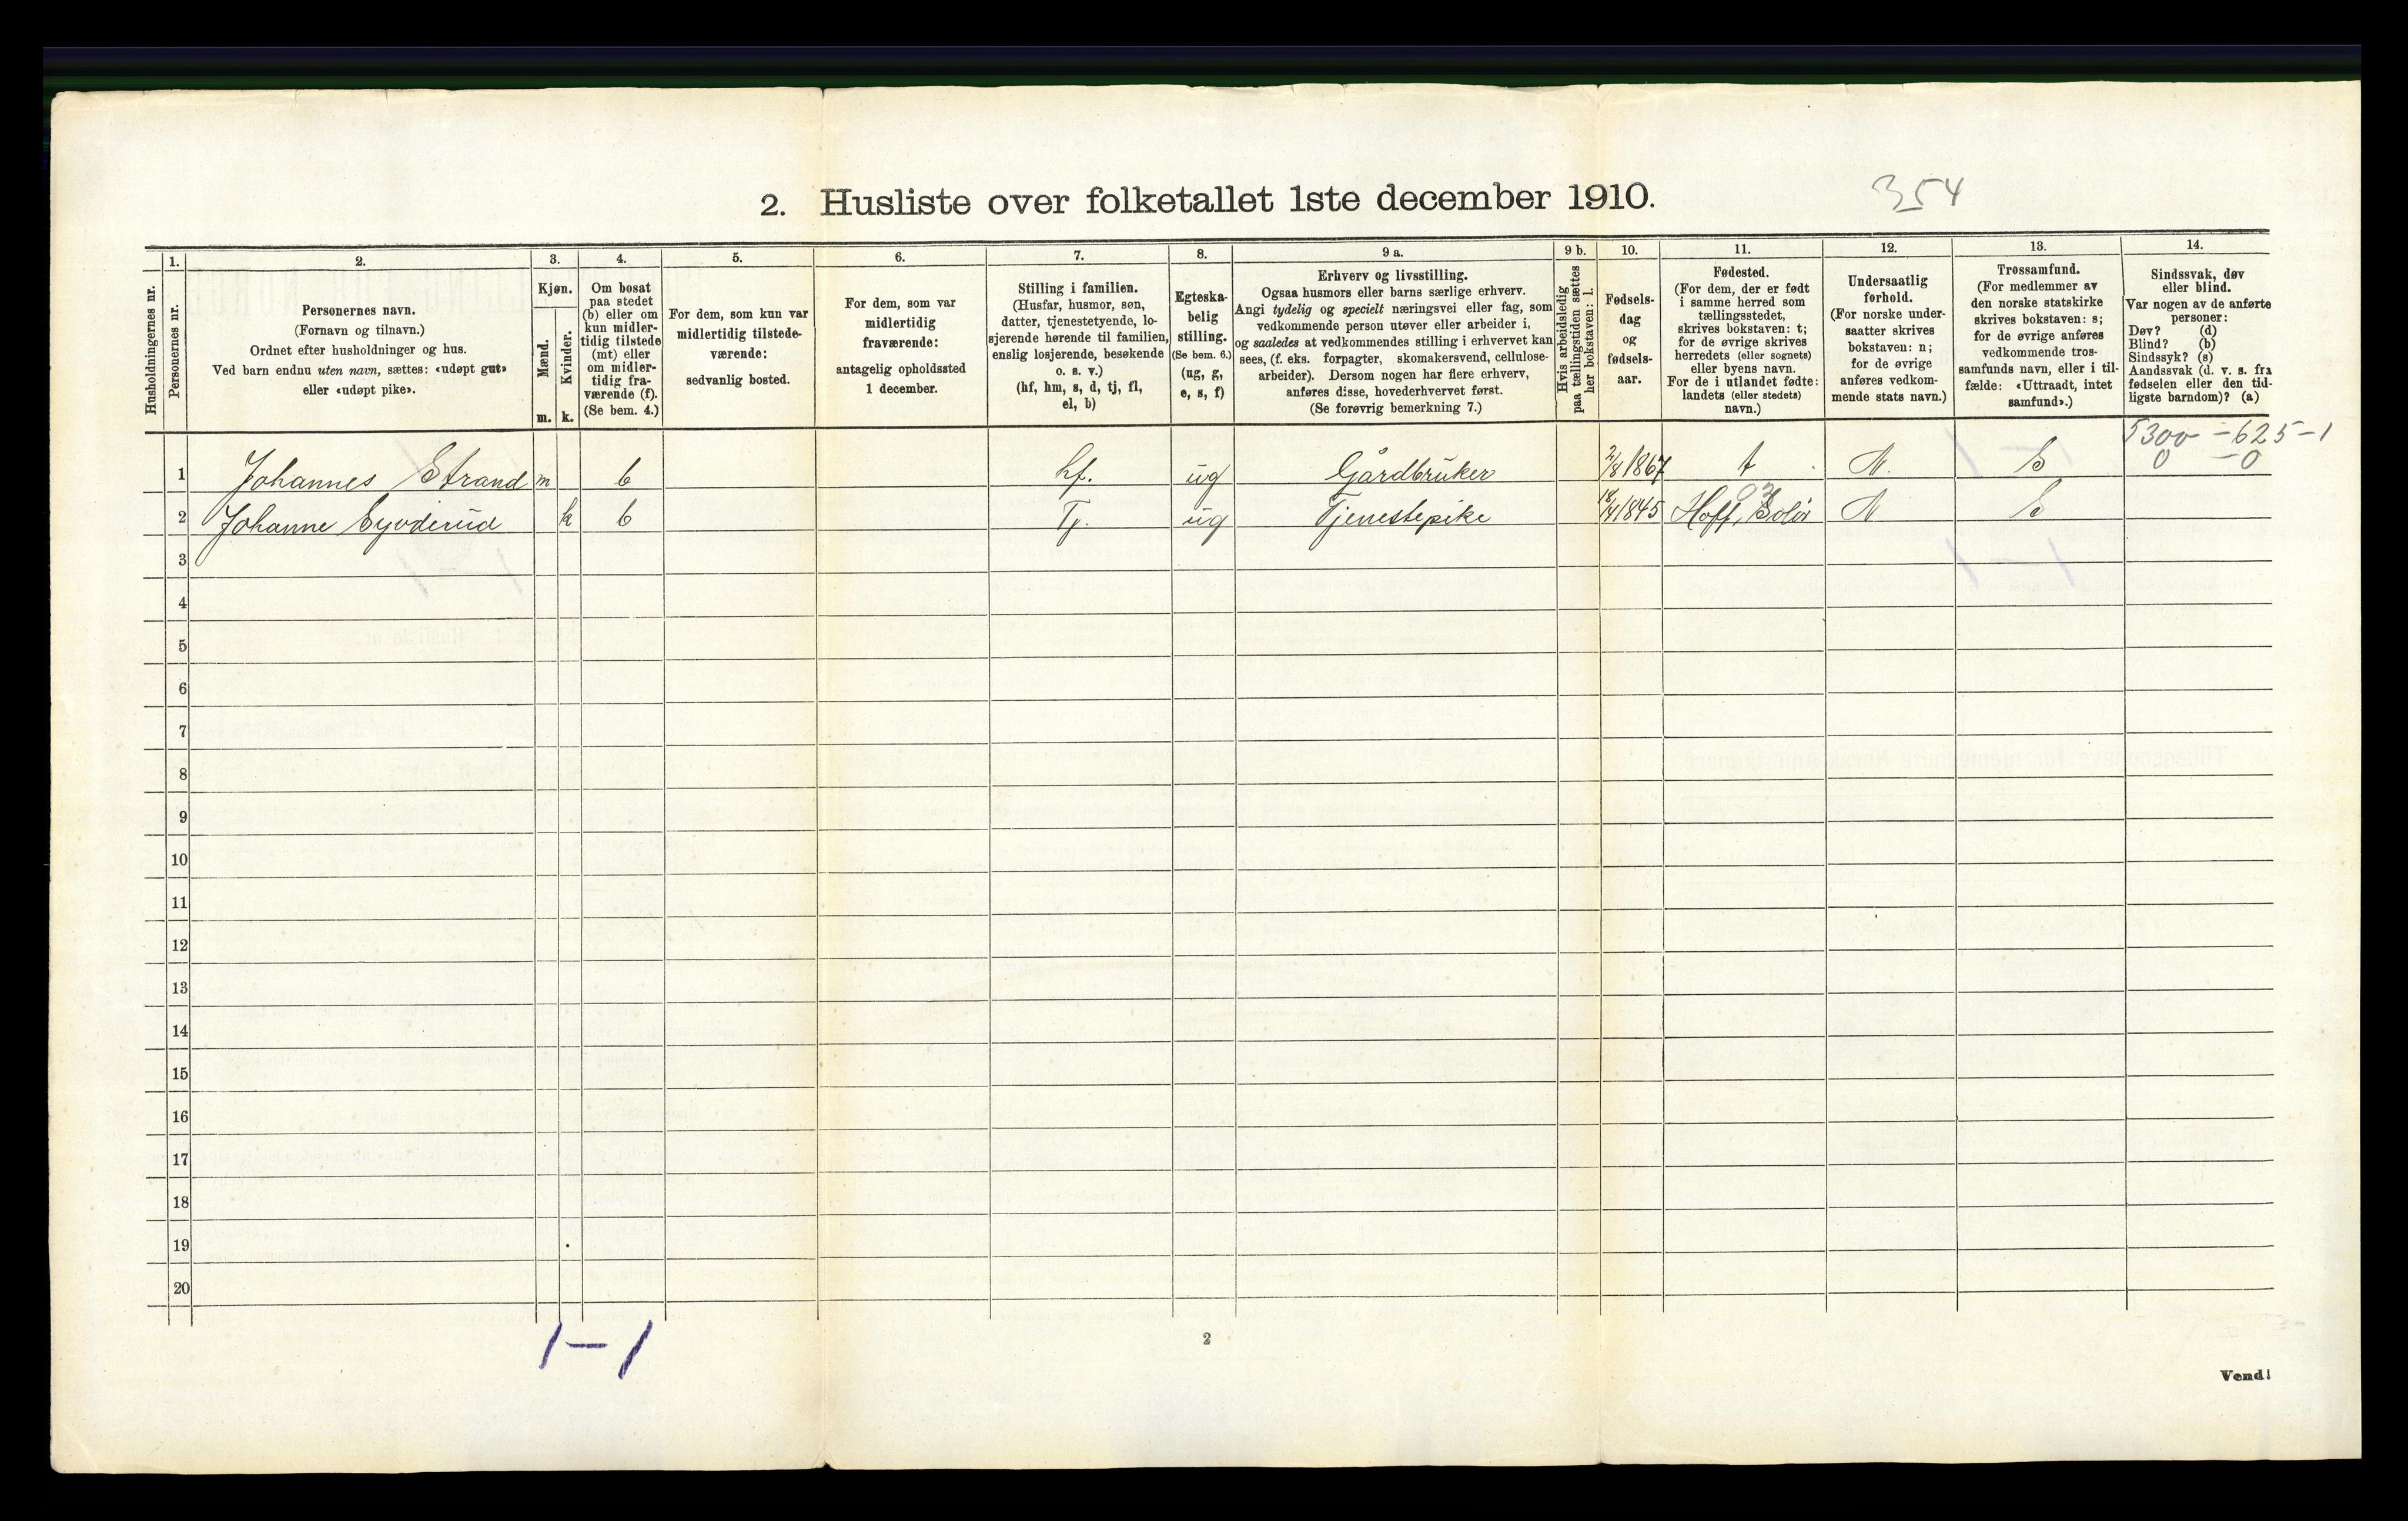 2. Husliste over folketallet 1ste december 1910.
354
1. 2. 3. 4. 5. 6. 7. 8. 9 a. 9 b. 10. 11. 12. 13. 14.
Husholdningernes nr.
Personernes nr.
Personernes navn.
(Fornavn og tilnavn.)
Ordnet efter husholdninger og hus.
Ved barn endnu uten navn, sættes: «udøpt gut»
eller «udøpt pike».
Kjøn.
Mænd.
Kvinder.
m. k.
Om bosat
paa stedet
(b) eller om
kun midler-
tidig tilstede
(mt) eller
om midler-
tidig fra-
værende (f).
(Se bem. 4.)
For dem, som kun var
midlertidig tilstede-
værende:
sedvanlig bosted.
For dem, som var
midlertidig
fraværende:
antagelig opholdssted
1 december.
Stilling i familien.
(Husfar, husmor, søn,
datter, tjenestetyende, lo-
sjerende hørende til familien,
enslig losjerende, besøkende
o. s. v.)
(hf, hm, s, d, tj, fl,
el, b)
Egteska-
belig
stilling.
(Se bem. 6.)
(ug, g,
e, s, f)
Erhverv og livsstilling.
Ogsaa husmors eller barns særlige erhverv.
Angi tydelig og specielt næringsvei eller fag, som
vedkommende person utøver eller arbeider i,
og saaledes at vedkommendes stilling i erhvervet kan
sees, (f. eks. forpagter, skomakersvend, cellulose-
arbeider). Dersom nogen har flere erhverv,
anføres disse, hovederhvervet først.
(Se forøvrig bemerkning 7.)
Hvis arbeidsledig
paa tællingstiden sættes
her bokstaven: l.
Fødsels-
dag
og
fødsels-
aar.
Fødested.
(For dem, der er født
i samme herred som
tællingsstedet,
skrives bokstaven: t;
for de øvrige skrives
herredets (eller sognets)
eller byens navn.
For de i utlandet fødte:
landets (eller stedets)
navn.)
Undersaatlig
forhold.
(For norske under-
saatter skrives
bokstaven: n;
for de øvrige
anføres vedkom-
mende stats navn.)
Trossamfund.
(For medlemmer av
den norske statskirke
skrives bokstaven: s;
for de øvrige anføres
vedkommende tros-
samfunds navn, eller i til-
fælde: «Uttraadt, intet
samfund».)
Sindssvak, døv
eller blind.
Var nogen av de anførte
personer:
Døv? (d)
Blind? (b)
Sindssyk? (s)
Aandssvak (d. v. s. fra
fødselen eller den tid-
ligste barndom)? (a)
5300 - 625 - 1
0 - 0
1 Johannes Strand m b hf. ug Gårdbruker 2/8 1867 t N. S
2 Johanne k b Tj. ug Tjenestepike 1845 Hoff, Solør N S
3
4
5
6
7
8
9
10
11
12
13
14
15
16
17
18
19
20
1-1
2
Vend!